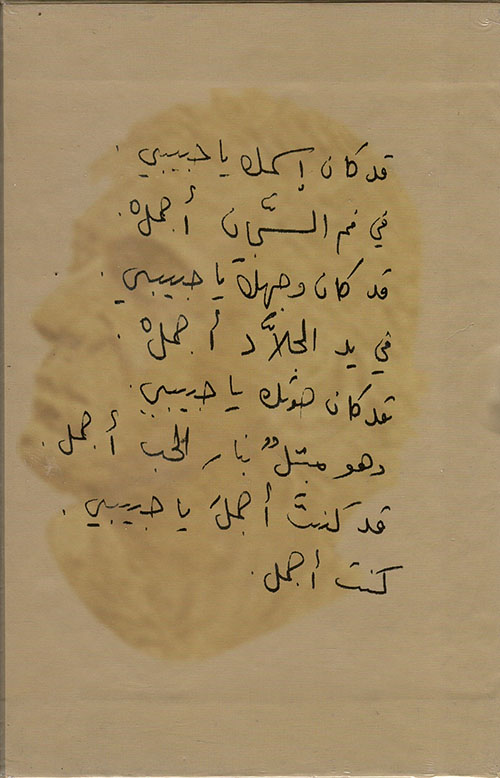 قد كان إسمك يا حبيبي .
في فم السَّجَّان أجمل .
قد كان وجهك يا حبيبي .
في يد الجلاَّد أجمل .
قد كان صوتك يا حبيبي .
وهو مبتلٌ بنار الحب أجمل .
قد كنتَ أجملَ يا حبيبي .
كنت أجمل .